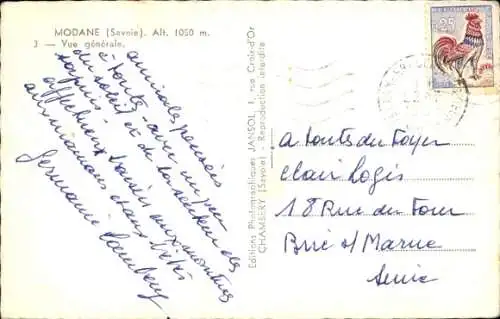 MODANE (Savoie). Alt. 1050 m.
3 - Vue générale.
amicales pensées
à toutes - avec un peu
du soleil et de la senteur des
sapins
affectueux baisers aux
aux mamans et aux bébés
Germaine
Editions Photographiques JANSOL, 1, rue Croix-d'Or
CHAMBERY (Savoie) - Reproduction interdite
0,25
a toutes du Foyer
Clair Logis
18 Rue du Four
Brie s/ Marne
Seine